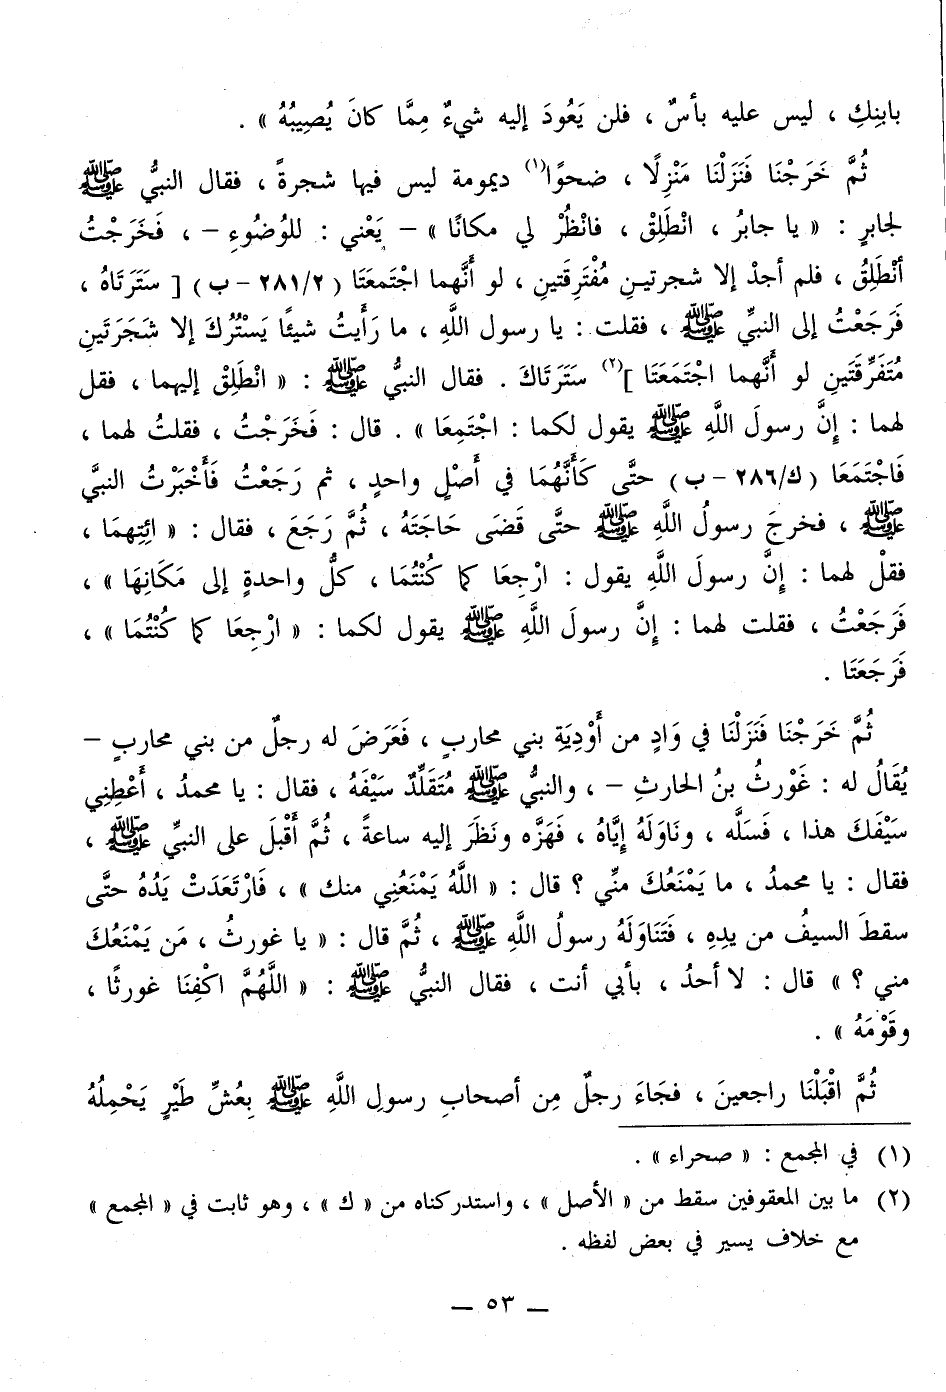 بابنِكِ ، ليس عليه بأسٌ ، فلن يَعُودَ إليه شيءٌ مِمَّا كانَ يُصِيبُهُ » .
ثُمَّ خَرَجْنَا فَنَزَلْنَا مَنْزِلًا ، ضحوًا(١) ديمومة ليس فيها شجرةً ، فقال النبيُّ ﷺ
لجابرٍ : « يا جابرُ ، انْطَلِقْ ، فانْظُرْ لي مكانًا » – يَعْني : للوُضُوءِ – ، فَخَرَجْتُ
أنْطَلِقُ ، فلم أجدْ إلا شجرتينِ مُفْتَرِقَتينِ ، لو أنَّهما اجْتَمعَتَا ( ٢٨١/٢ – ب ) [ سَتَرَتَاهُ ،
فَرَجَعْتُ إلى النبيِّ ﷺ ، فقلت : يا رسول اللَّهِ ، ما رَأَيتُ شيئًا يَسْتُرُكَ إلا شَجَرَتَينِ
مُتَفَرِّقَتَينِ لو أنَّهما اجْتَمَعَتَا ](٢) سَتَرَتَاكَ . فقال النبيُّ ﷺ : « انْطَلِقْ إليهما ، فقل
لهما : إنَّ رسولَ اللَّهِ ﷺ يقول لكما : اجْتَمِعَا » . قال : فَخَرَجْتُ ، فقلتُ لهما ،
فَاجْتَمَعَا ( ك/٢٨٦ – ب ) حتَّى كَأَنَّهُمَا في أَصْلٍ واحدٍ ، ثم رَجَعْتُ فَأَخْبَرْتُ النبيَّ
ﷺ ، فخرجَ رسولُ اللَّهِ ﷺ حتَّى قَضَى حَاجَتَهُ ، ثُمَّ رَجَعَ ، فقال : « ائِتِهمَا ،
فقلْ لهما : إنَّ رسولَ اللَّهِ يقول : ارْجِعَا كما كُنْتُمَا ، كلُّ واحدةٍ إلى مَكَانِهَا » ،
فَرَجَعْتُ ، فقلت لهما : إنَّ رسولَ اللَّهِ ﷺ يقول لكما : « ارْجِعَا كما كُنْتُمَا » ،
فَرَجَعَتَا .
ثُمَّ خَرَجْنَا فَنَزَلْنَا في وَادٍ من أَوْدِيَةِ بني محاربٍ ، فَعَرَضَ له رجلٌ من بني محاربٍ –
يُقَالُ له : غَوْرثُ بنُ الحارثِ – ، والنبيُّ ﷺ مُتَقَلِّدٌ سَيْفَهُ ، فقال : يا محمدُ ، أَعْطِنِي
سَيْفَكَ هذا ، فَسَلَّه ، ونَاوَلَهُ إيَّاهُ ، فَهَزَّه ونَظَرَ إليه ساعةً ، ثُمَّ أَقْبَلَ على النبيِّ ﷺ ،
فقال : يا محمدُ ، ما يَمْنَعُكَ منِّي ؟ قال : « اللَّهُ يَمْنَعُنِي منك » ، فَارْتَعَدَتْ يَدُهُ حتَّى
سقطَ السيفُ من يدِهِ ، فَتَنَاوَلَهُ رسولُ اللَّهِ ﷺ ، ثُمَّ قال : « يا غورثُ ، مَن يَمْنَعُكَ
مني ؟ » قال : لا أحدُ ، بأبي أنت ، فقال النبيُّ ﷺ : « اللَّهُمَّ اكْفِنَا غورثًا ،
وقَوْمَهُ » .
ثُمَّ اقْبَلْنَا راجعينَ ، فجَاءَ رجلٌ مِن أصحابِ رسولِ اللَّهِ ﷺ بِعُشِّ طَيْرٍ يَحْمِلُهُ
(١) في المجمع : « صحراء » .
(٢) ما بين المعقوفين سقط من « الأصل » ، واستدركناه من « ك » ، وهو ثابت في « المجمع »
مع خلاف يسير في بعض لفظه .
— ٥٣ —